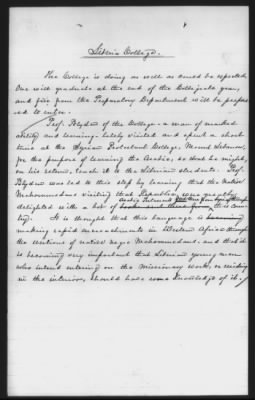 Liberia College.
The College is doing as well as could be expected.
One will graduate at the end of the Collegiate year,
and five from the Preparatory Department will be prepar-
ed to enter.
Prof. Blyden of the College - a man of marked
ability and learning - lately visited and spent a short
time at the Syrian Protestant College, Mount Lebanon,
for the purpose of learning the Arabic, so that he might,
on his return, teach it to the Liberian students. Prof.
Blyden was led to this step by learning that the native
Mahommedans visiting that Republic, were greatly
delighted with a box of
Arabic Testaments sent from
try. It is thought that this language is becoming
making rapid encroachments in Western Africa through
the exertions of native Negro Mahommedans, and that it
is becoming very important that Liberian young men
who intend entering on the Missionary work, or residing
in the interior, should have some knowledge of it.